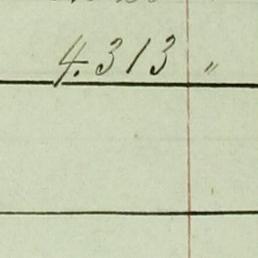 4.313 "